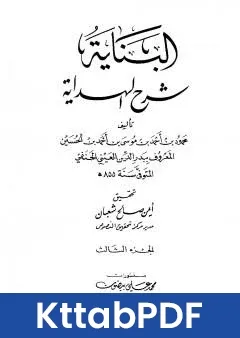 البناية
شرح الهداية
تأليف
محمود بن أحمد بن موسى بن أحمد بن الحسين
المعروف ببدر الدين العيني الحنفي
المتوفى سنة ٨٥٥ هـ
تحقيق
أيمن صالح شعبان
الجزء الثالث
منشورات
محمد علي بيضون
KttabPDF